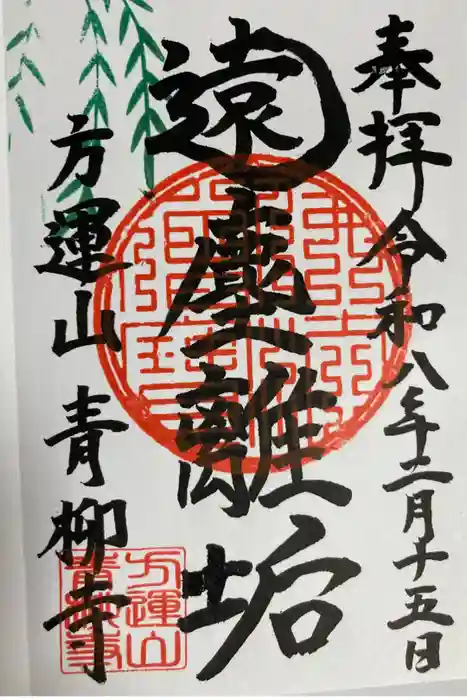 奉拝 令和八年二月十五日
遠塵離垢
方運山 青柳寺
方運山
青柳寺